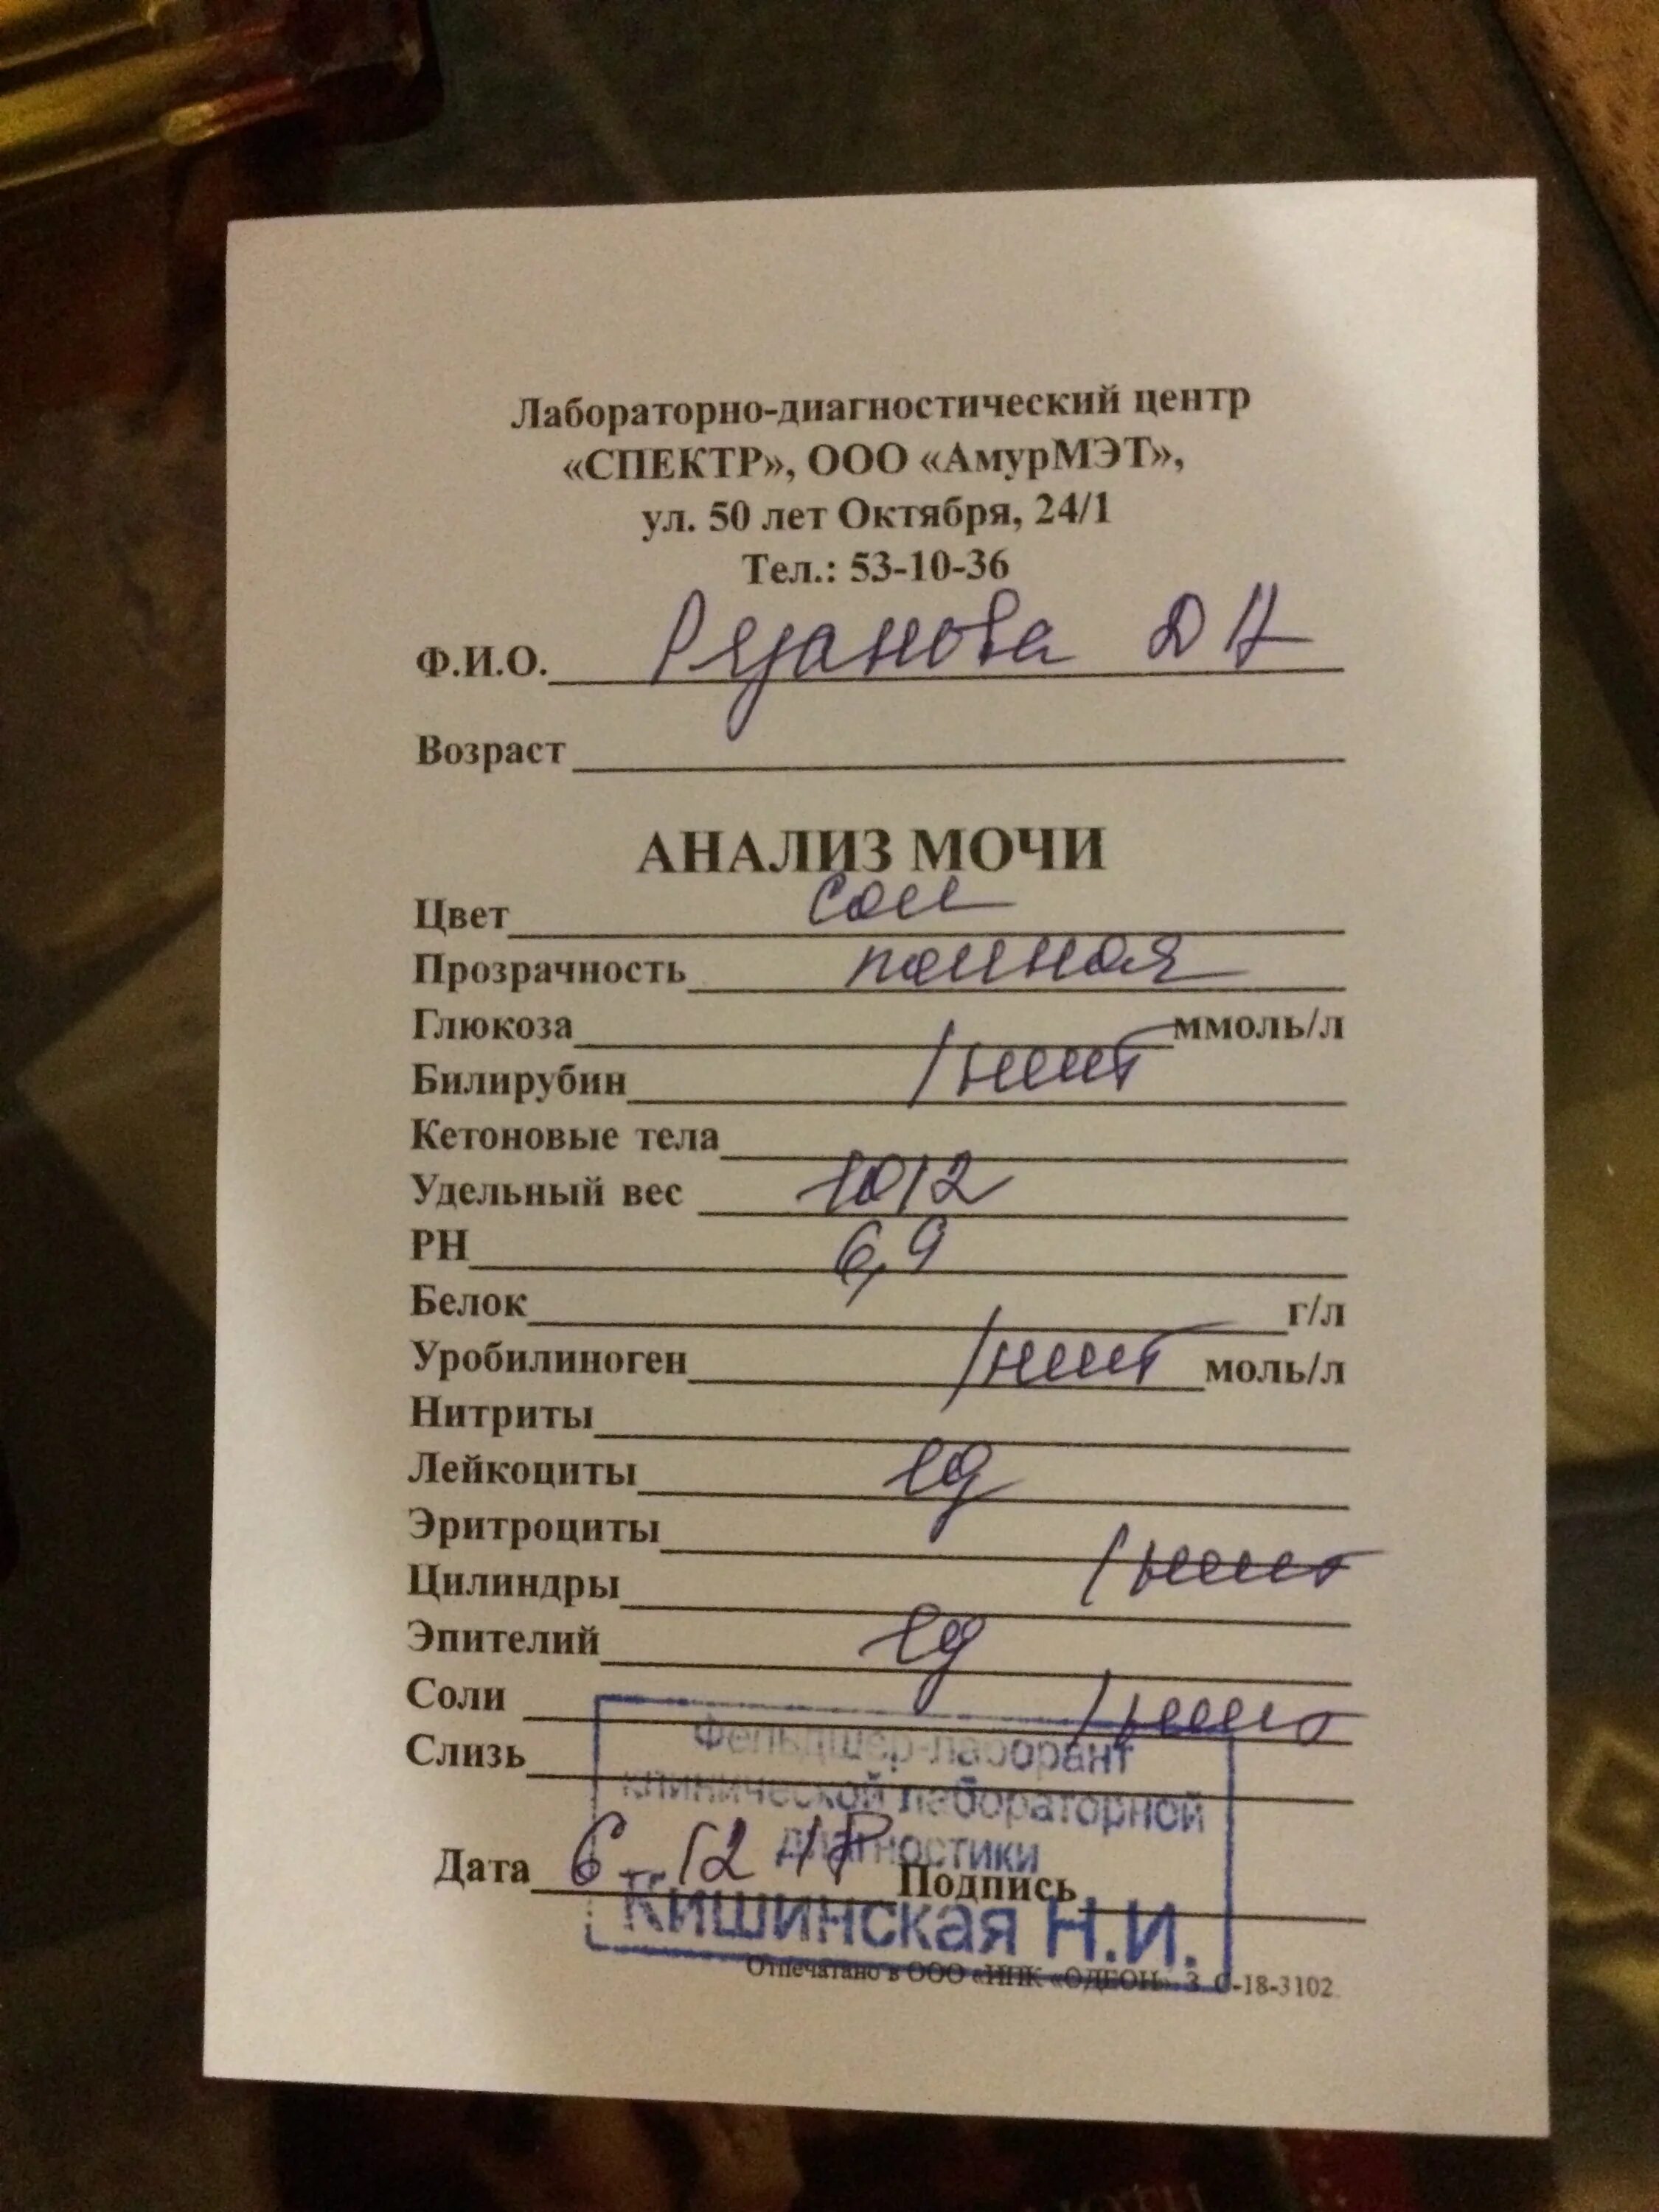 Лабораторно-диагностический центр
«СПЕКТР», ООО «АмурМЭТ»,
ул. 50 лет Октября, 24/1
Тел.: 53-10-36
Ф.И.О. Рязанова Д Н
Возраст
АНАЛИЗ МОЧИ
Цвет сол
Прозрачность полная
Глюкоза ммоль/л
Билирубин нет
Кетоновые тела
Удельный вес 1012
РН 6,9
Белок г/л
Уробилиноген нет моль/л
Нитриты
Лейкоциты ед
Эритроциты
Цилиндры нет
Эпителий ед
Соли нет
Слизь
Фельдшер-лаборант
клинической лабораторной
диагностики
Дата 6 12 Подпись
Кишинская Н.И.
Отпечатано в ООО «НПК «ОДЕОН». З. С-18-3102